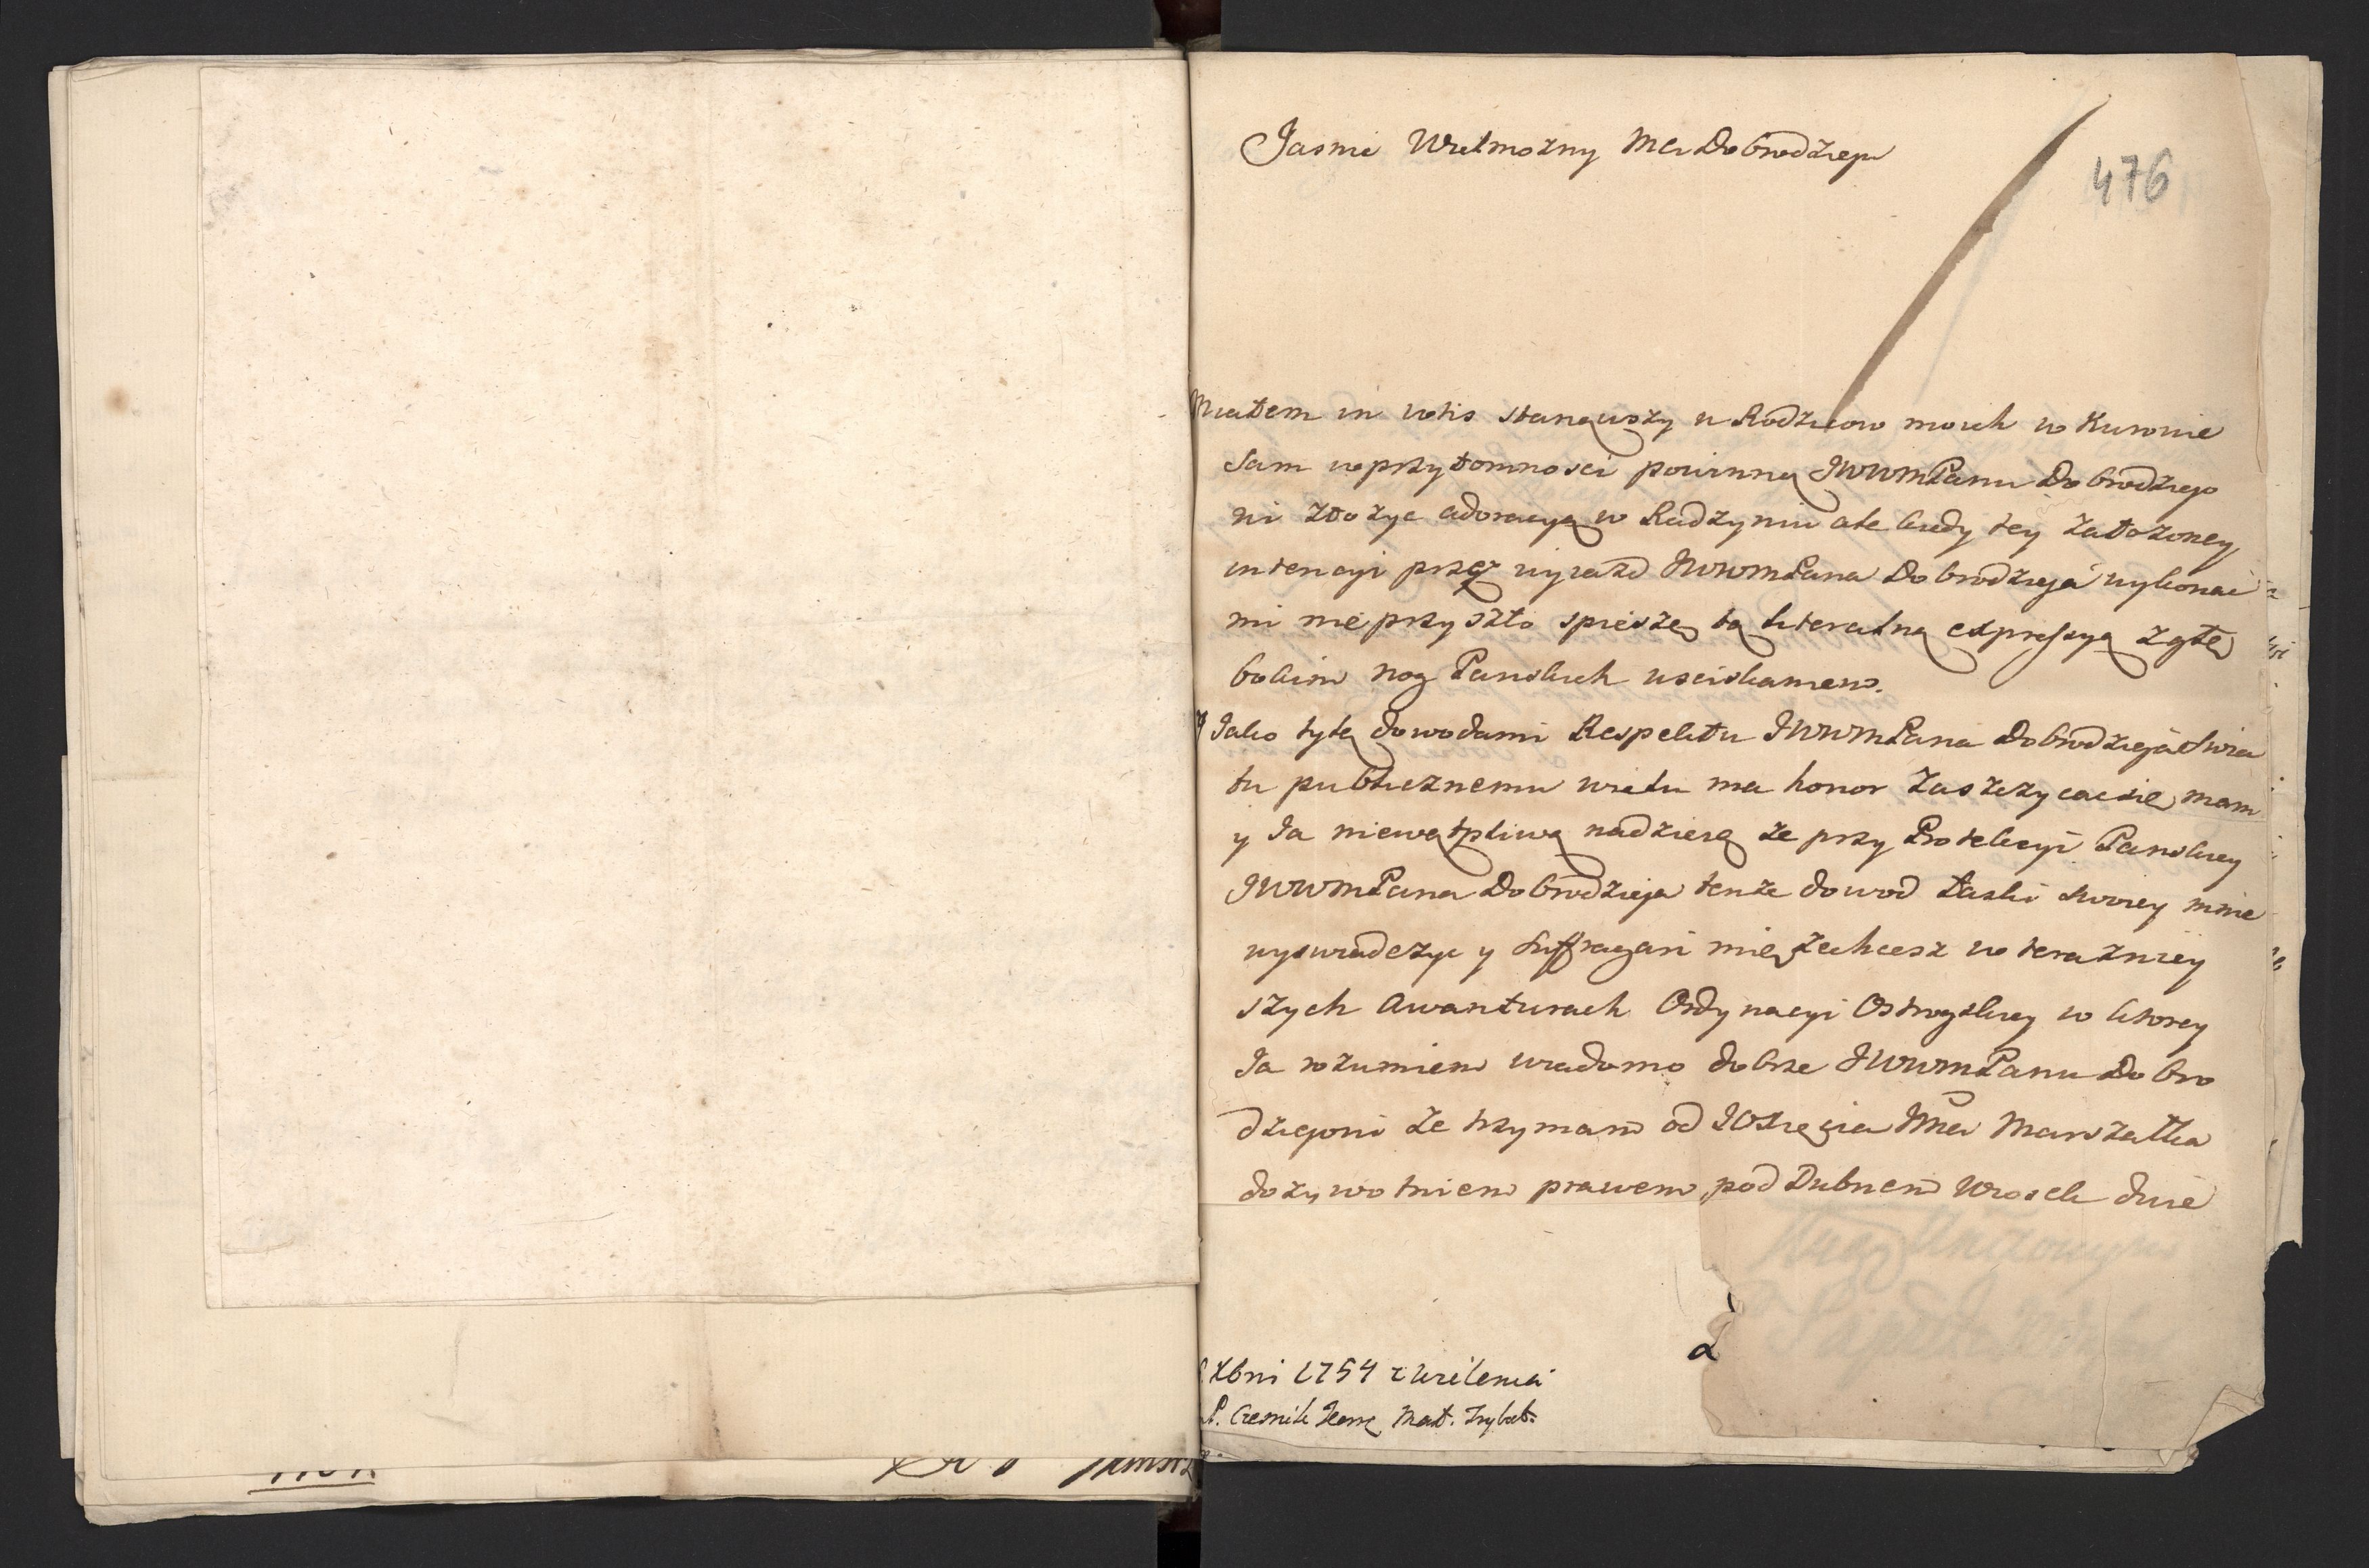 Jasnie Wielmozny Mci Dobrodzieju
476
Miałem in votis stanąwszy u Rodzicow moich w Kurowie
sam w przytomnosci powinną JWWMPanu Dobrodziejo
wi złożyc adoracyą w Radzyniu ale kiedy tey założoney
intencyi przez wyiazd JWWMPana Dobrodzieja wykonać
mi nie przyszło spieszę tą literalną expressyą z głę
bokim nog Panskich usciskaniem.
Y Jako tylą dowodami Respektu JWWMPana Dobrodzieja swia
tu publicznemu wielu ma honor zaszczycac się mam
y Ja niewątpliwą nadzieię że przy Protekcyi Panskiey
JWWMPana Dobrodzieja tenże dowod łaski swoiey mnie
wyswiadczyc y suffragari mię zechcesz w terazniey
szych Awanturach Ordynacyi Ostrogskiey w ktorey
Ja rozumiem wiadomo dobrze JWWMPanu Dobro
dziejowi że trzymam od JOXięcia Jmci Marszałka
dożywotniem prawem pod Dubnem Wiosek dwie
Xbris 1754 z Wilenia
P. Czesnik Ma‌rsz. Trybał.